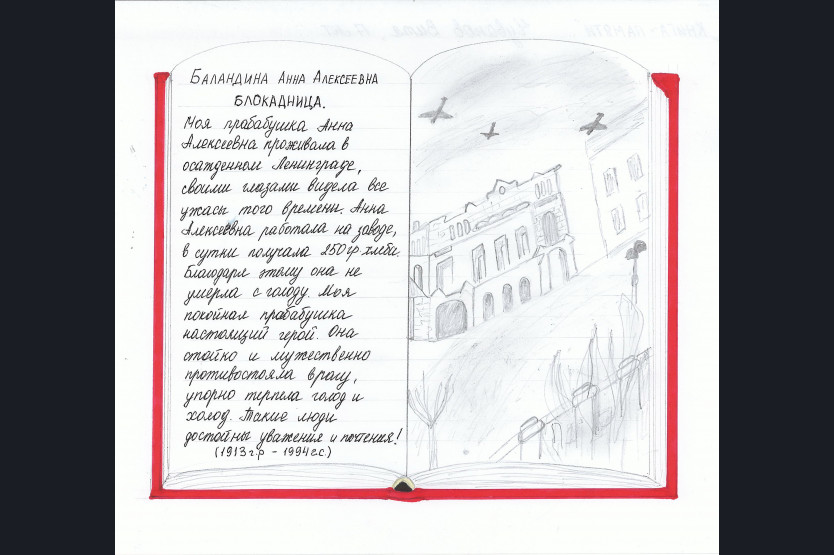 Баландина Анна Алексеевна
блокадница.
Моя прабабушка Анна
Алексеевна проживала в
осажденном Ленинграде,
своими глазами видела все
ужасы того времени. Анна
Алексеевна работала на заводе,
в сутки получала 250гр хлеба.
Благодаря этому она не
умерла с голоду. Моя
покойная прабабушка
настоящий герой. Она
стойко и мужественно
противостояла врагу,
упорно терпела голод и
холод. Такие люди
достойны уважения и почтения!
(1913г.р - 1994г.с.)